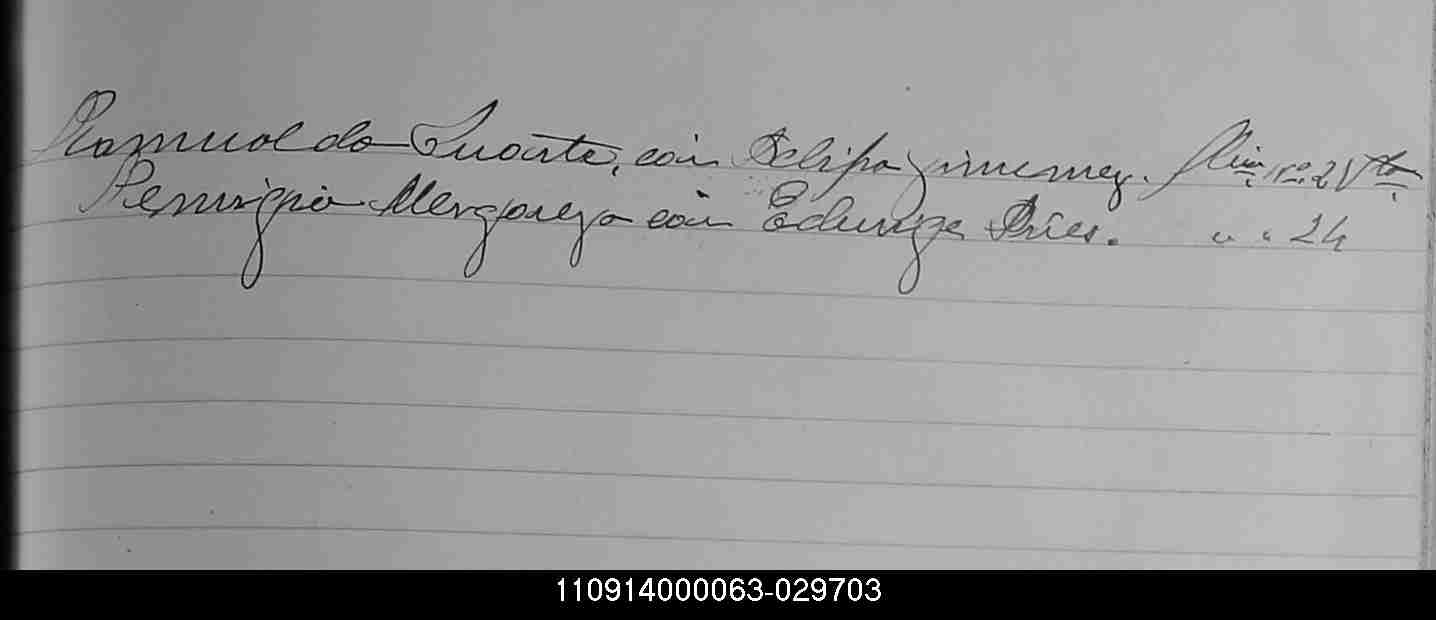 Romualdo Duarte, con Felipa Jimenez. 21 Vta
Remigio Mergarejo con Eduvige Rúes. " " 24
110914000063-029703